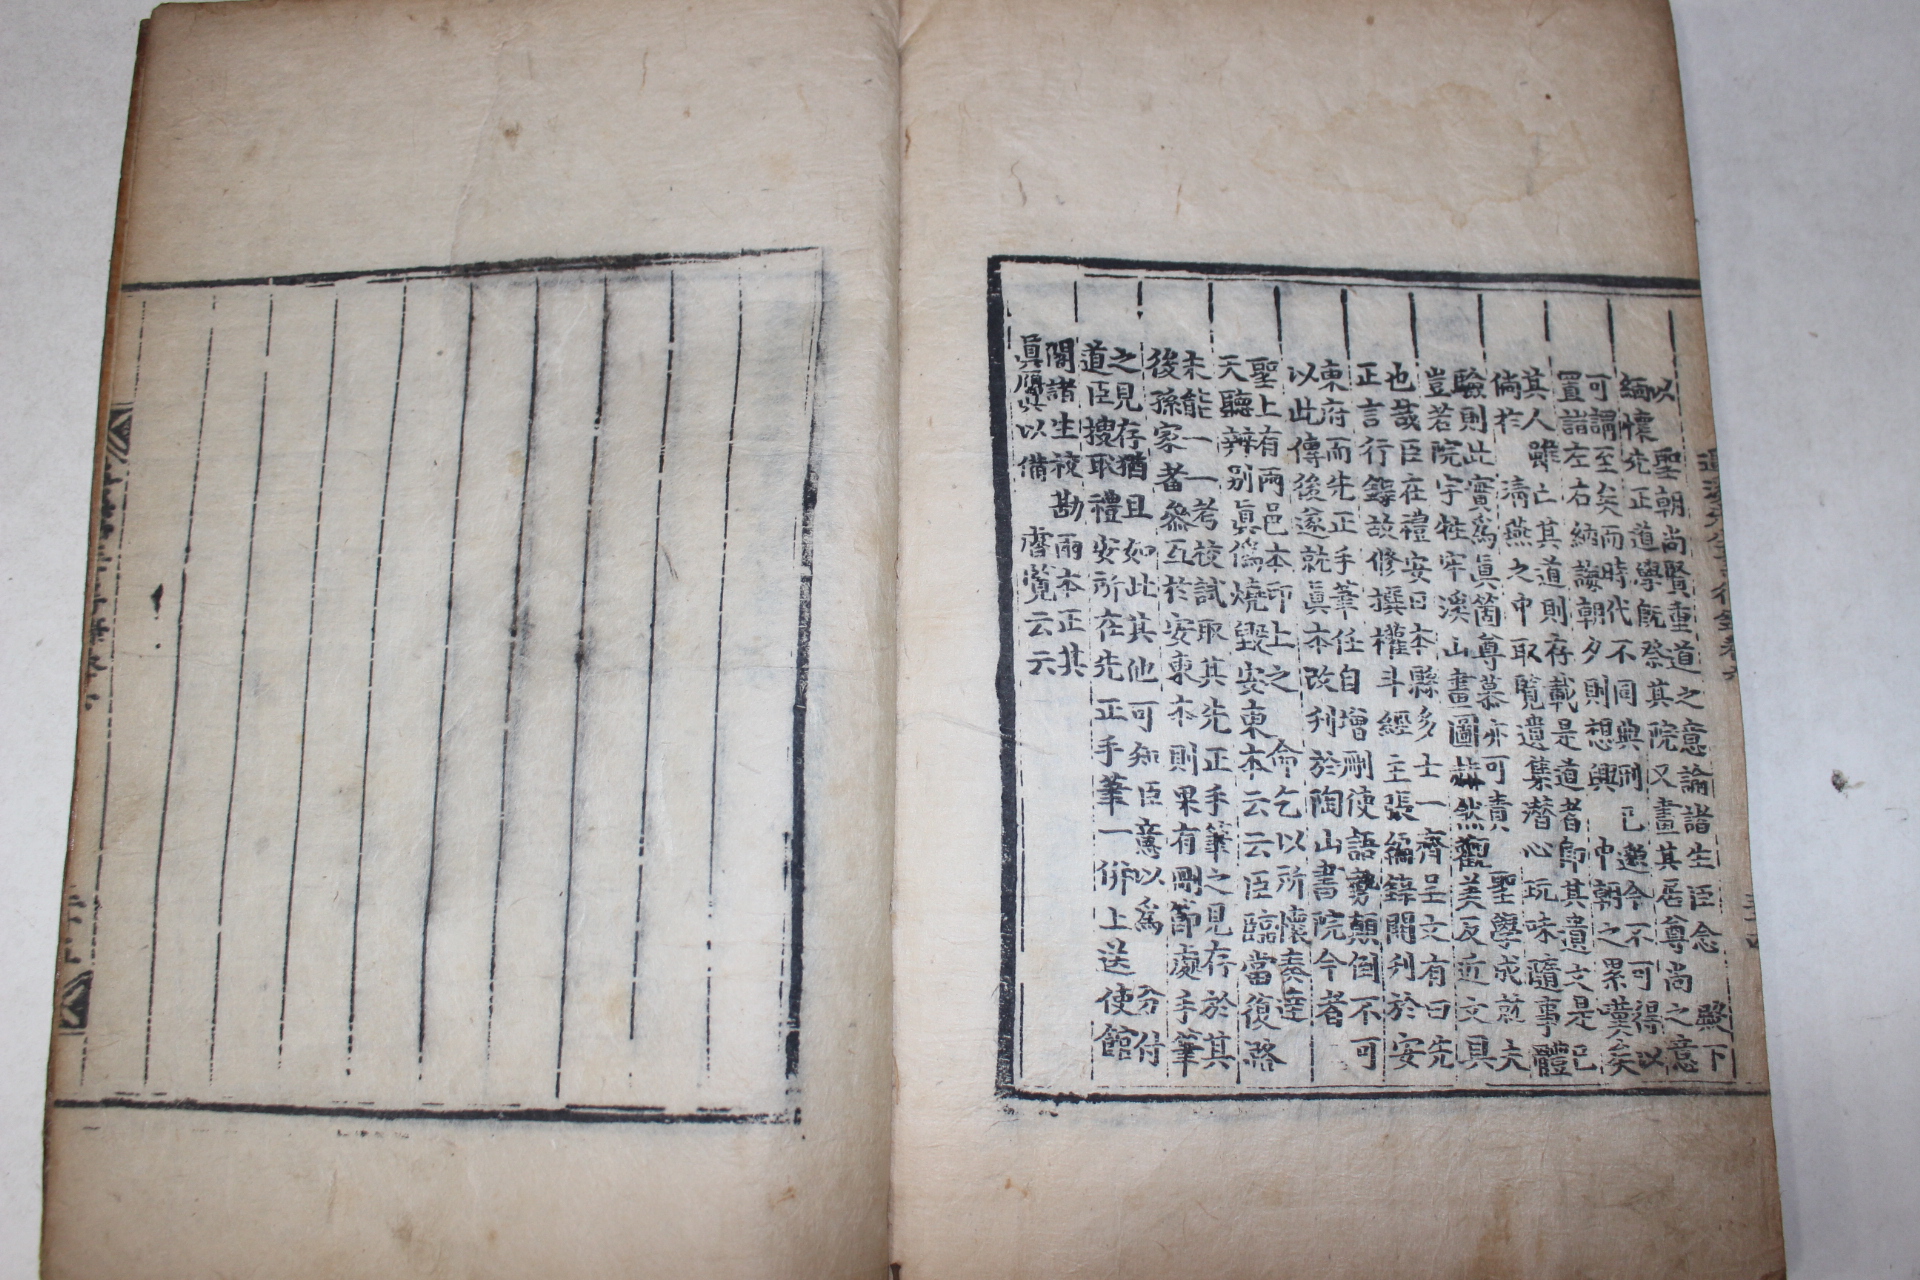 以　聖朝尚賢重道之意諭諸生臣念　殿下
緬懷先正道學旣祭其院又畫其居尊尚之意
可謂至矣而時代不同典刑已邈今不可得以
置諸左右納誨朝夕則想興　中朝之累嘆矣
其人雖亡其道則存載是道者卽其遺文是已
倘於　淸燕之中取覽遺集潛心玩味隨事體
驗則此實爲眞箇尊慕亦可責　聖學成就夫
豈若院宇牲牢溪山畫圖赫然觀美反近文具
也哉臣在禮安日本縣多士一齊呈文有曰先
正言行錄故修撰權斗經主張編錄開刋於安
東府而先正手筆任自增刪使語勢顚倒不可
以此傳後遂就眞本改刋於陶山書院今者
聖上有兩邑本印上之　命乞以所懷奏達
天聽辨别眞僞燒毁安東本云云臣臨當復路
未能一一考校試取其先正手筆之見存於其
後孫家者叅互於安東本則果有刪節處手筆
之見存猶且如此其他可知臣意以爲　分付
道臣搜取禮安所在先正手筆一倂上送使館
閣諸生校勘兩本正其
眞贗以備　睿覽云云